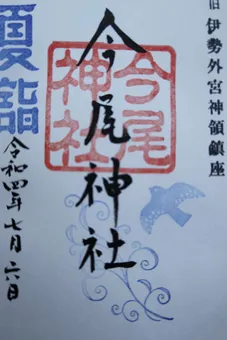 旧伊勢外宮神領鎮座
今尾神社
今尾神社
夏詣
令和四年七月六日